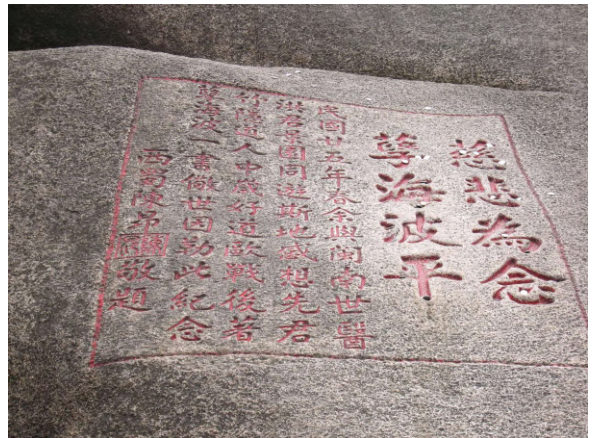 慈悲為念
孽海波平
民國廿五年春余與閩南世醫
洪君景園同遊斯地感想先君
竹隱道人中歲好道歐戰後著
孽海波一書儆世因勒此紀念
西蜀陵弟敬題